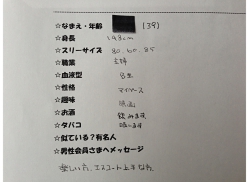 ☆なまえ・年齢 (39)
☆身長 148cm
☆スリーサイズ 80.60.85
☆職業 主婦
☆血液型 B型
☆性格 マイペース
☆趣味 映画
☆お酒 飲みます
☆タバコ 吸います
☆似ている?有名人
☆男性会員さまへメッセージ
楽しい方、エスコート上手な方